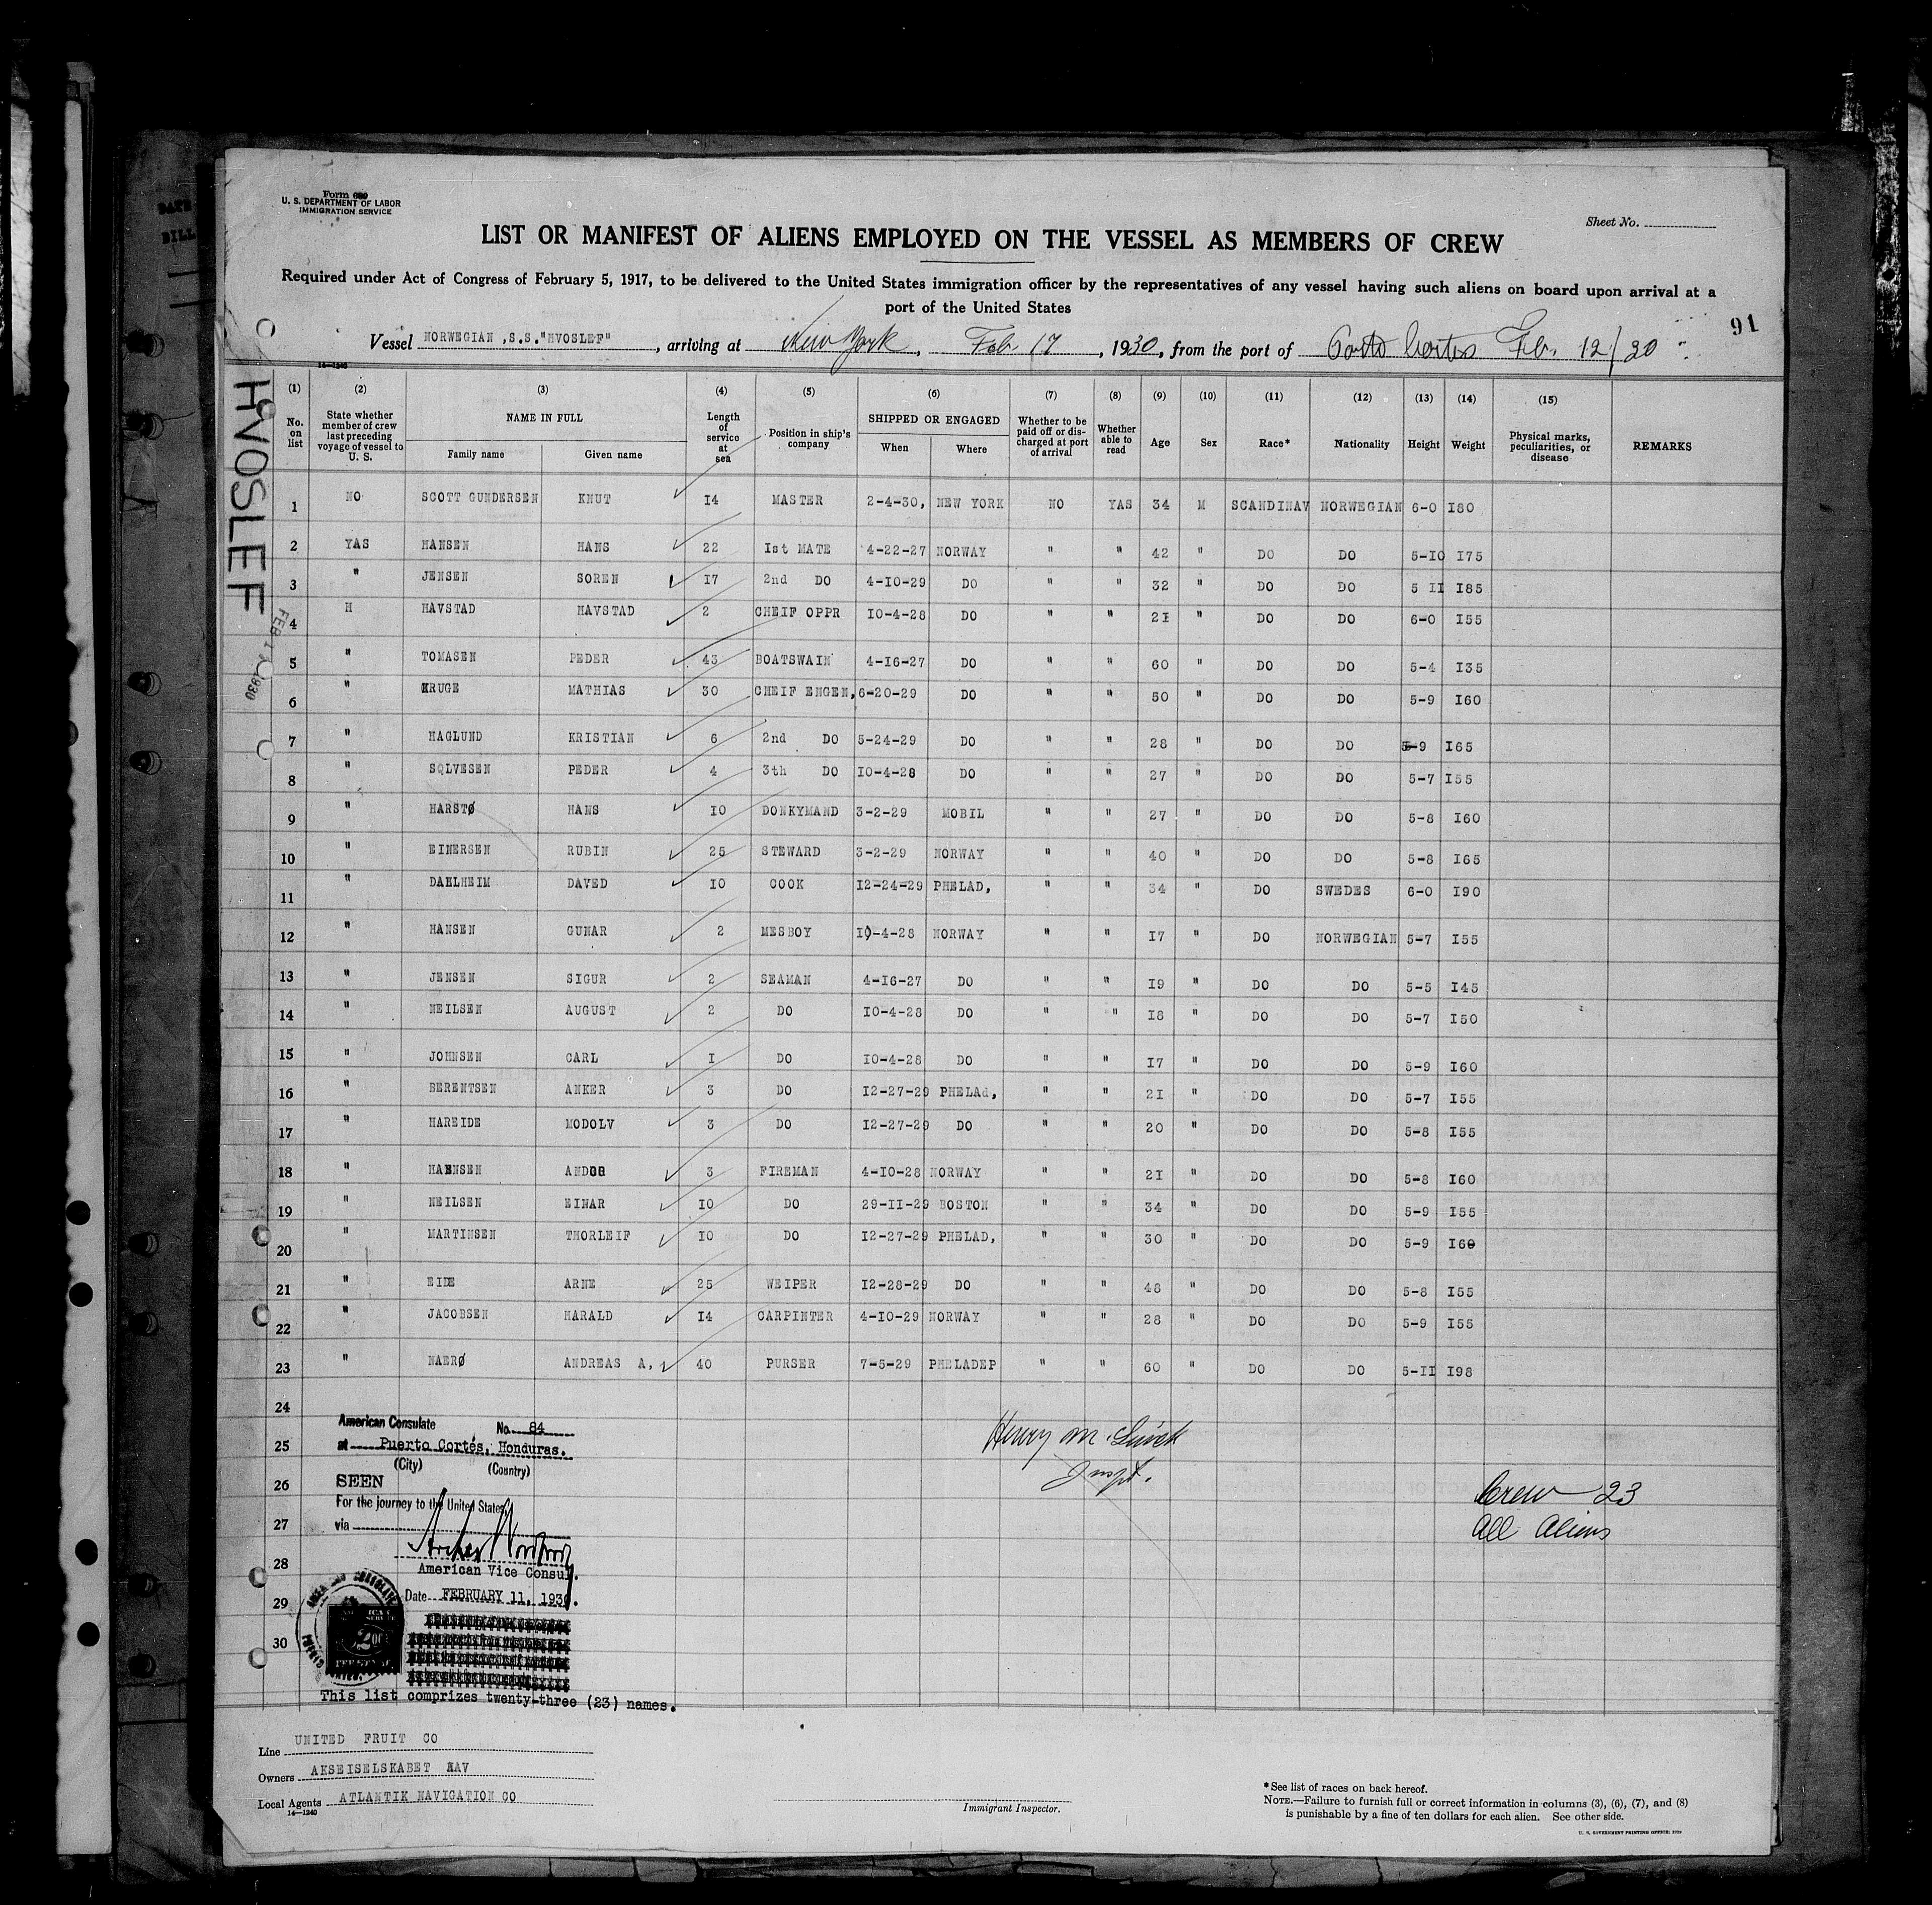 DATE
BILL
Form 680
U. S. DEPARTMENT OF LABOR
IMMIGRATION SERVICE
Sheet No.
LIST OR MANIFEST OF ALIENS EMPLOYED ON THE VESSEL AS MEMBERS OF CREW
Required under Act of Congress of February 5, 1917, to be delivered to the United States immigration officer by the representatives of any vessel having such aliens on board upon arrival at a
port of the United States
91
Vessel NORWEGIAN ,S.S."HVOSLEF" , arriving at New York , Feb 17 , 1930, from the port of Porto Cortes Feb. 12/30
14-1240
HVOSLEF
FEB 17 1930
(1) (2) (3) (4) (5) (6) (7) (8) (9) (10) (11) (12) (13) (14) (15)
No. on list State whether member of crew last preceding voyage of vessel to U. S. NAME IN FULL Family name Given name Length of service at sea Position in ship's company SHIPPED OR ENGAGED When Where Whether to be paid off or discharged at port of arrival Whether able to read Age Sex Race* Nationality Height Weight Physical marks, peculiarities, or disease REMARKS
1 NO SCOTT GUNDERSEN KNUT 14 MASTER 2-4-30, NEW YORK NO YAS 34 M SCANDINAV NORWEGIAN 6-0 I80
2 YAS HANSEN HANS 22 Ist MATE 4-22-27 NORWAY " " 42 " DO DO 5-IO I75
3 " JENSEN SOREN I7 2nd DO 4-IO-29 DO " " 32 " DO DO 5 II I85
4 H HAVSTAD HAVSTAD 2 CHEIF OPPR IO-4-28 DO " " 2I " DO DO 6-0 I55
5 " TOMASEN PEDER 43 BOATSWAIN 4-I6-27 DO " " 60 " DO DO 5-4 I35
6 " KRUGE MATHIAS 30 CHEIF ENGEN, 6-20-29 DO " " 50 " DO DO 5-9 I60
7 " HAGLUND KRISTIAN 6 2nd DO 5-24-29 DO " " 28 " DO DO 5-9 I65
8 " SOLVESEN PEDER 4 3th DO IO-4-28 DO " " 27 " DO DO 5-7 I55
9 " HARSTØ HANS IO DONKYMAND 3-2-29 MOBIL " " 27 " DO DO 5-8 I60
10 " EINERSEN RUBIN 25 STEWARD 3-2-29 NORWAY " " 40 " DO DO 5-8 I65
11 " DAELHEIM DAVED IO COOK I2-24-29 PHELAD, " " 34 " DO SWEDES 6-0 I90
12 " HANSEN GUNAR 2 MESBOY IO-4-28 NORWAY " " I7 " DO NORWEGIAN 5-7 I55
13 " JENSEN SIGUR 2 SEAMAN 4-I6-27 DO " " I9 " DO DO 5-5 I45
14 " NEILSEN AUGUST 2 DO IO-4-28 DO " " I8 " DO DO 5-7 I50
15 " JOHNSEN CARL I DO IO-4-28 DO " " I7 " DO DO 5-9 I60
16 " BERENTSEN ANKER 3 DO I2-27-29 PHELAd, " " 2I " DO DO 5-7 I55
17 " HAREIDE MODOLV 3 DO I2-27-29 DO " " 20 " DO DO 5-8 I55
18 " HANSEN 3 FIREMAN 4-IO-28 NORWAY " " 2I " DO DO 5-8 I60
19 " NEILSEN EINAR IO DO 29-II-29 BOSTON " " 34 " DO DO 5-9 I55
20 " MARTINSEN THORLEIF IO DO I2-27-29 PHELAD, " " 30 " DO DO 5-9 I60
21 " EIDE ARNE 25 WEIPER I2-28-29 DO " " 48 " DO DO 5-8 I55
22 " JACOBSEN HARALD I4 CARPINTER 4-IO-29 NORWAY " " 28 " DO DO 5-9 I55
23 " NAERØ ANDREAS A, 40 PURSER 7-5-29 PHELADEP " " 60 " DO DO 5-II I98
24
25
26
27
28
29
30
American Consulate No. 84
at Puerto Cortés, Honduras.
(City) (Country)
SEEN
For the journey to the United States,
via
American Vice Consul.
Date FEBRUARY 11, 1930.
This list comprizes twenty-three (23) names.
Henry M.
Inspt.
Crew 23
All Aliens
Line UNITED FRUIT CO
Owners AKSEISELSKABET HAV
Local Agents ATLANTIK NAVIGATION CO
14-1240
Immigrant Inspector.
*See list of races on back hereof.
NOTE.—Failure to furnish full or correct information in columns (3), (6), (7), and (8)
is punishable by a fine of ten dollars for each alien. See other side.
U. S. GOVERNMENT PRINTING OFFICE: